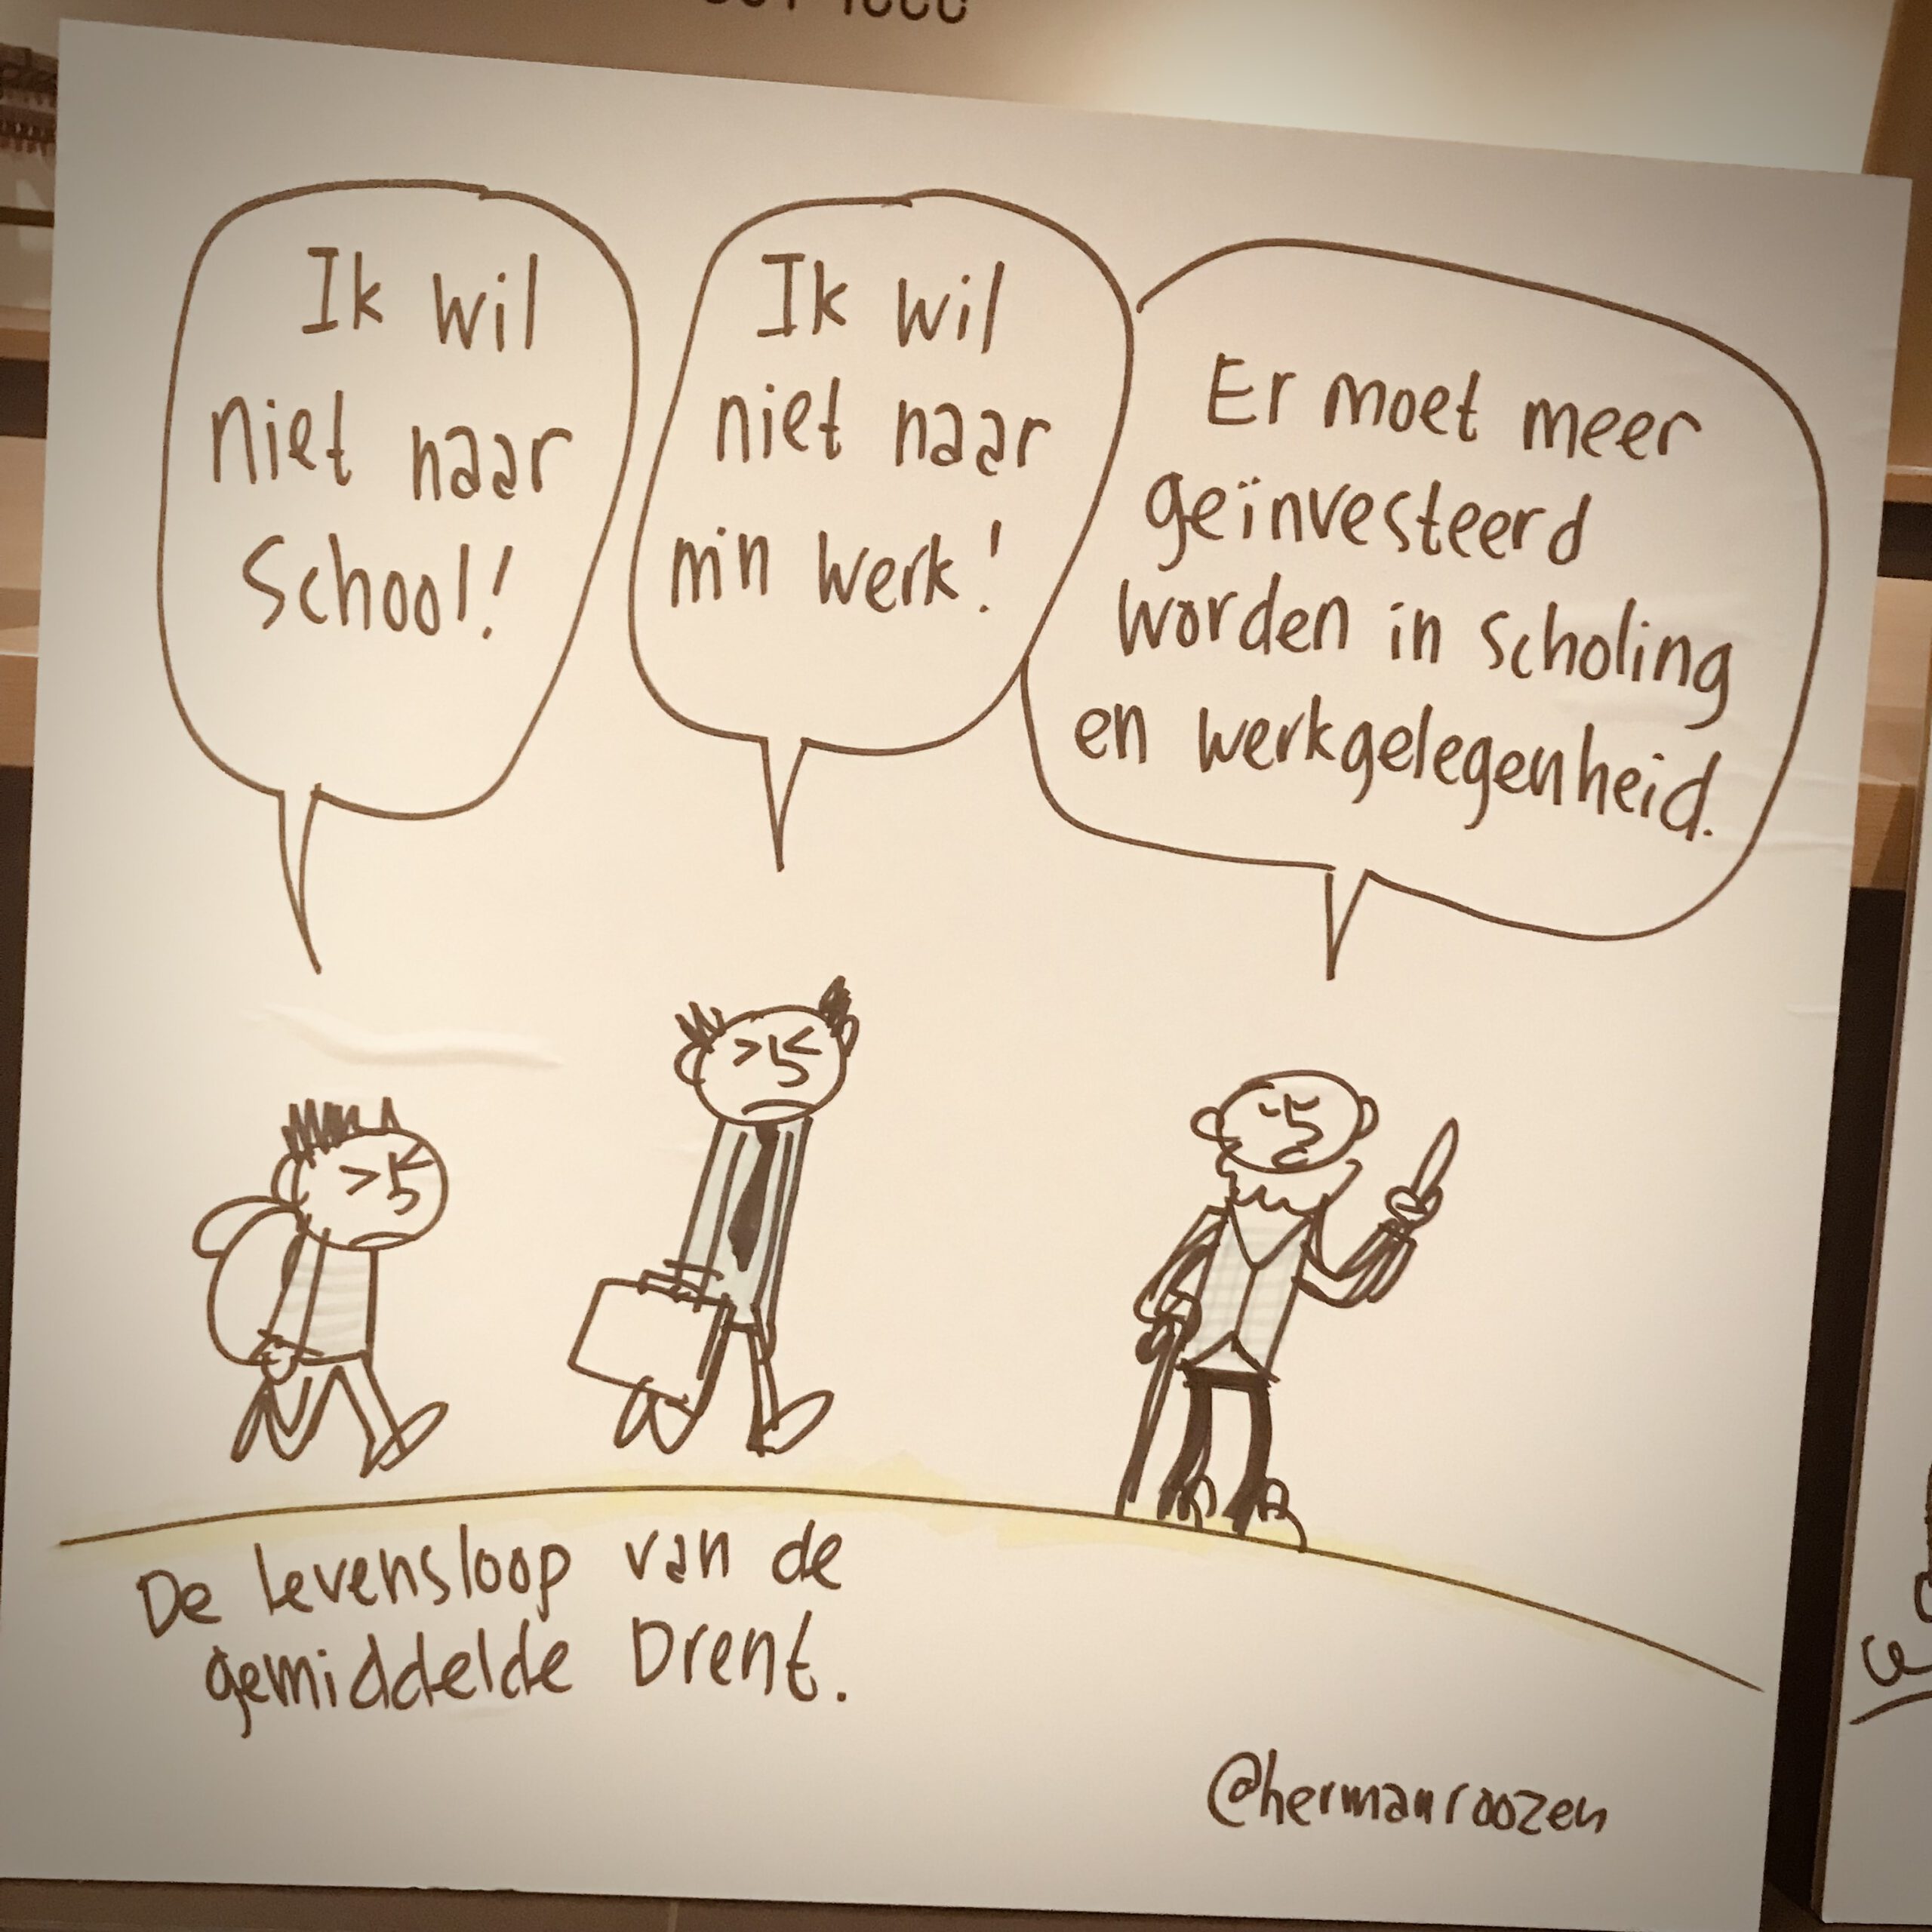 Ik wil
niet naar
school!
Ik wil
niet naar
m'n werk!
Er moet meer
geïnvesteerd
worden in scholing
en werkgelegenheid.
De levensloop van de
gemiddelde Drent.
@hermanroozen